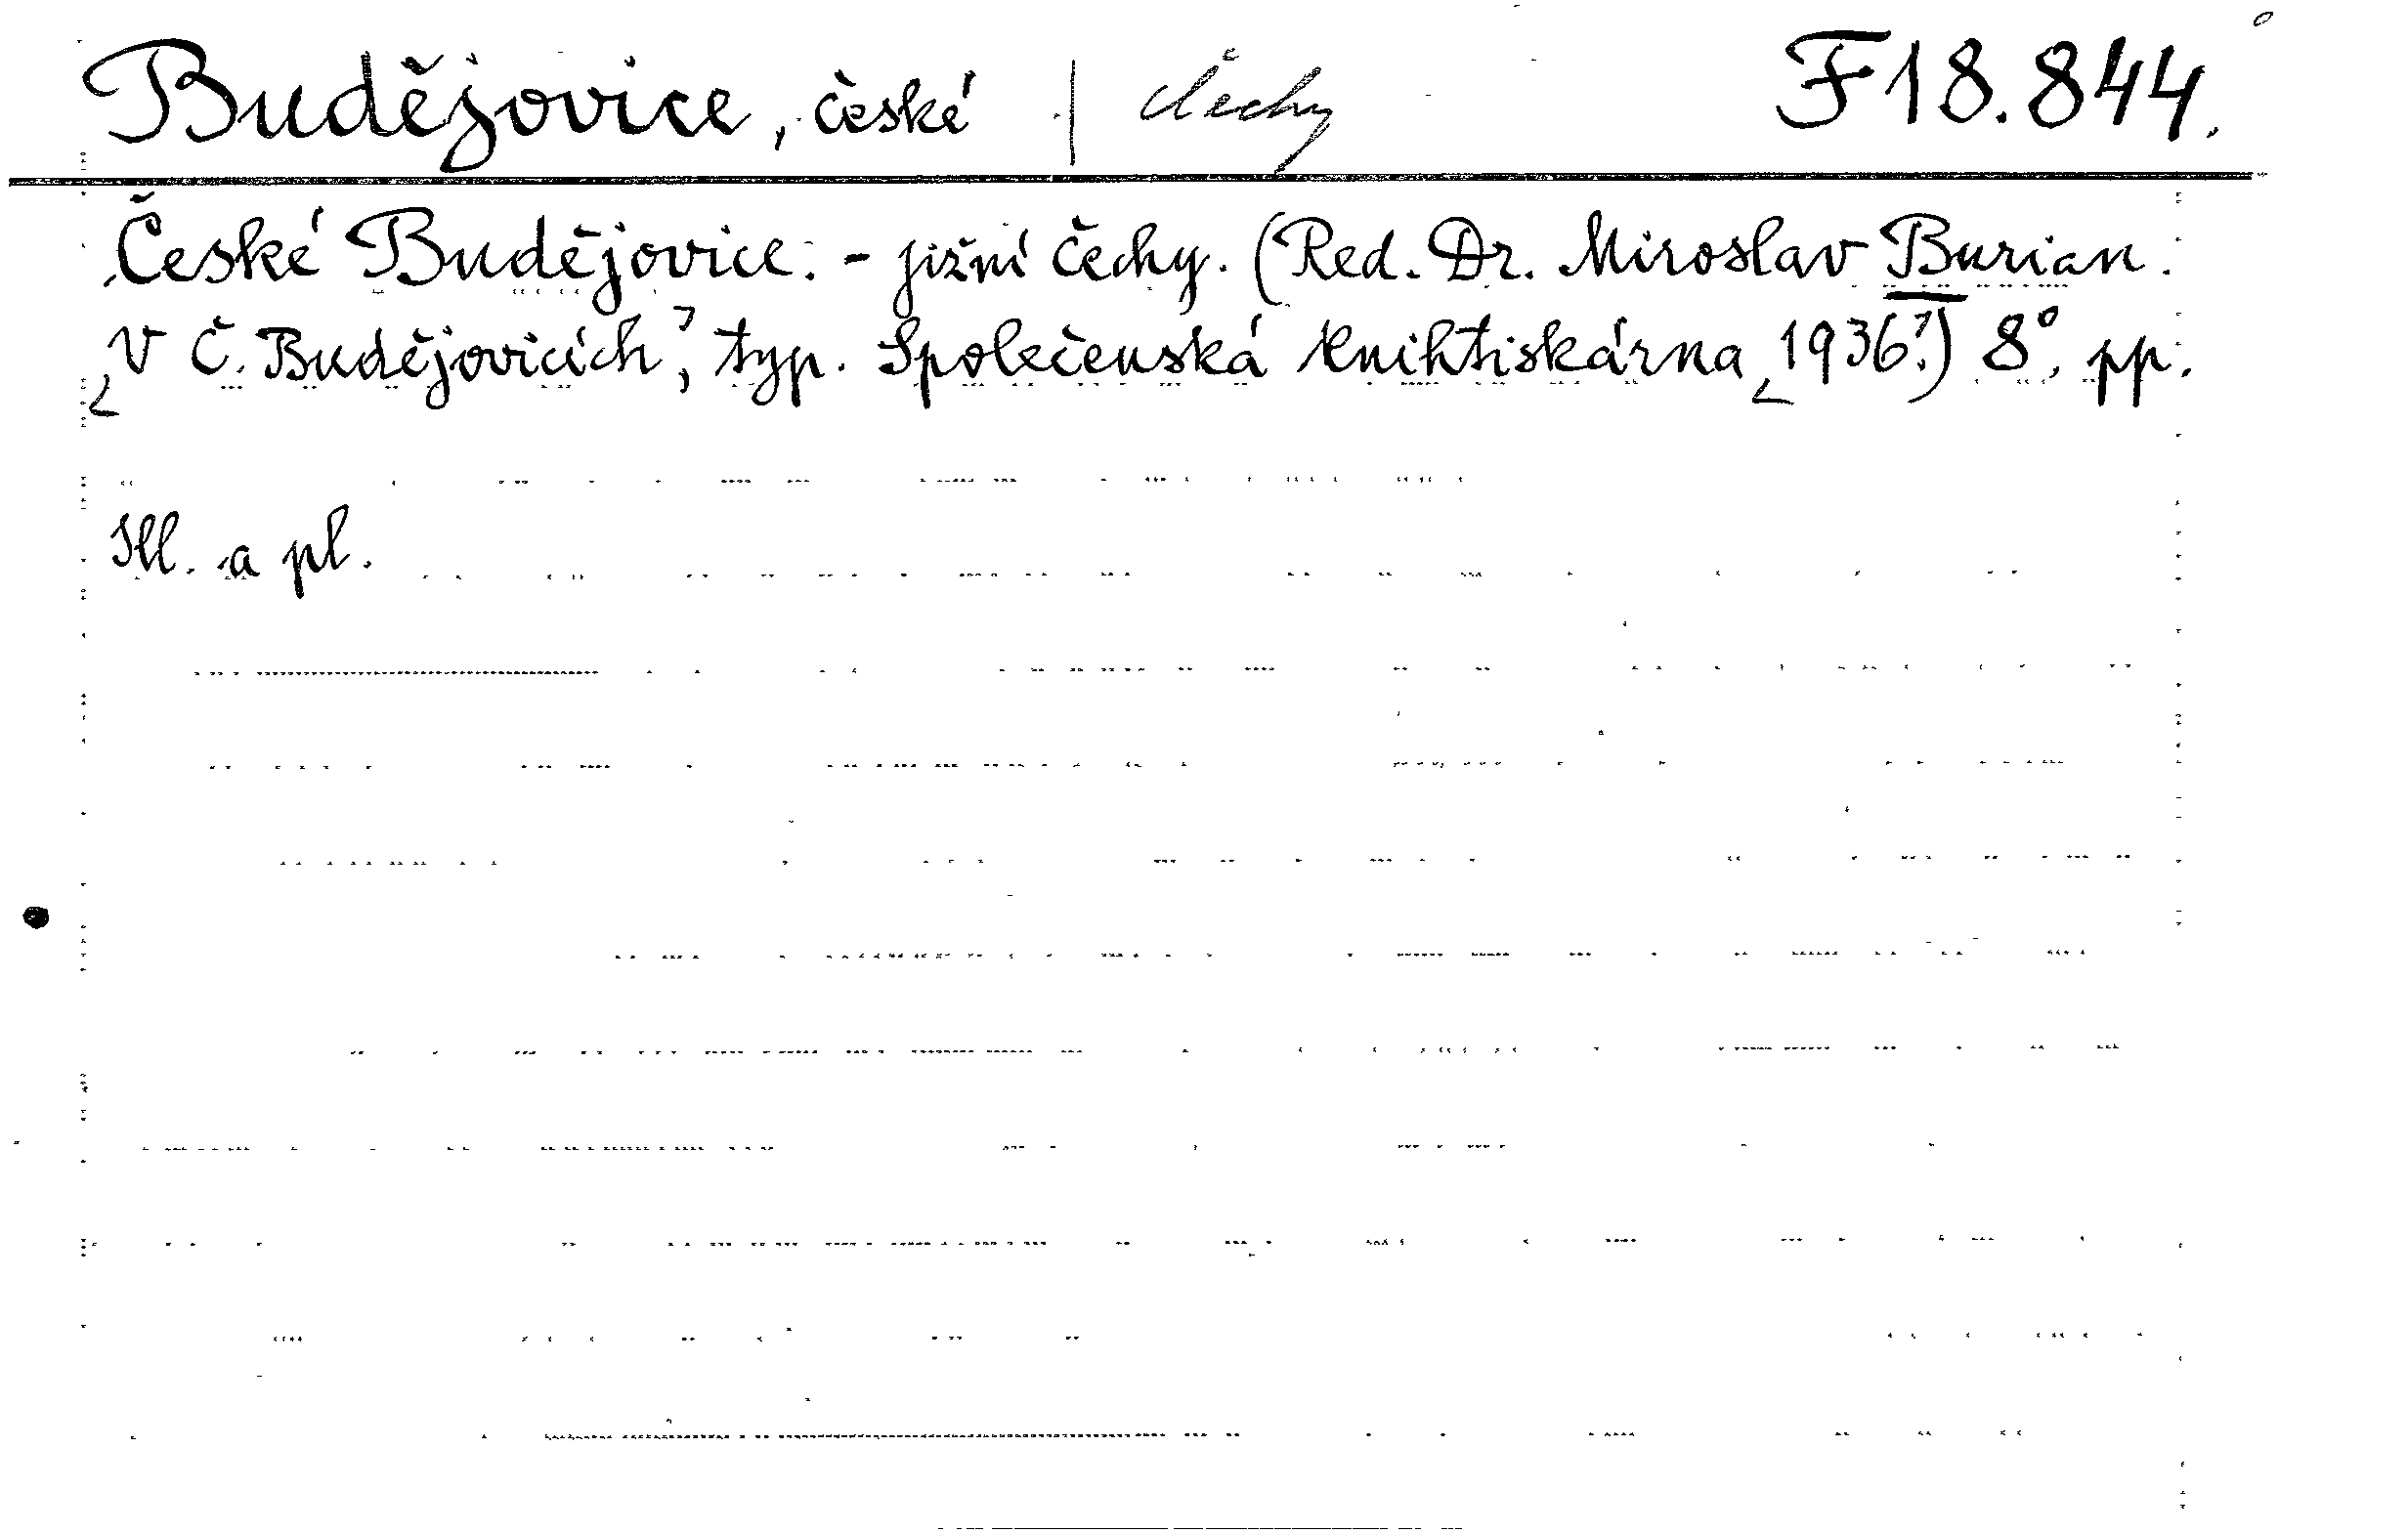 Budějovice, české | Čechy F 18.844.
České Budějovice. - jižní Čechy. (Red. Dr. Miroslav Burian.
[V Č. Budějovicích], typ. Společenská knihtiskárna [1936?]) 8°, pp.
Ill. a pl.